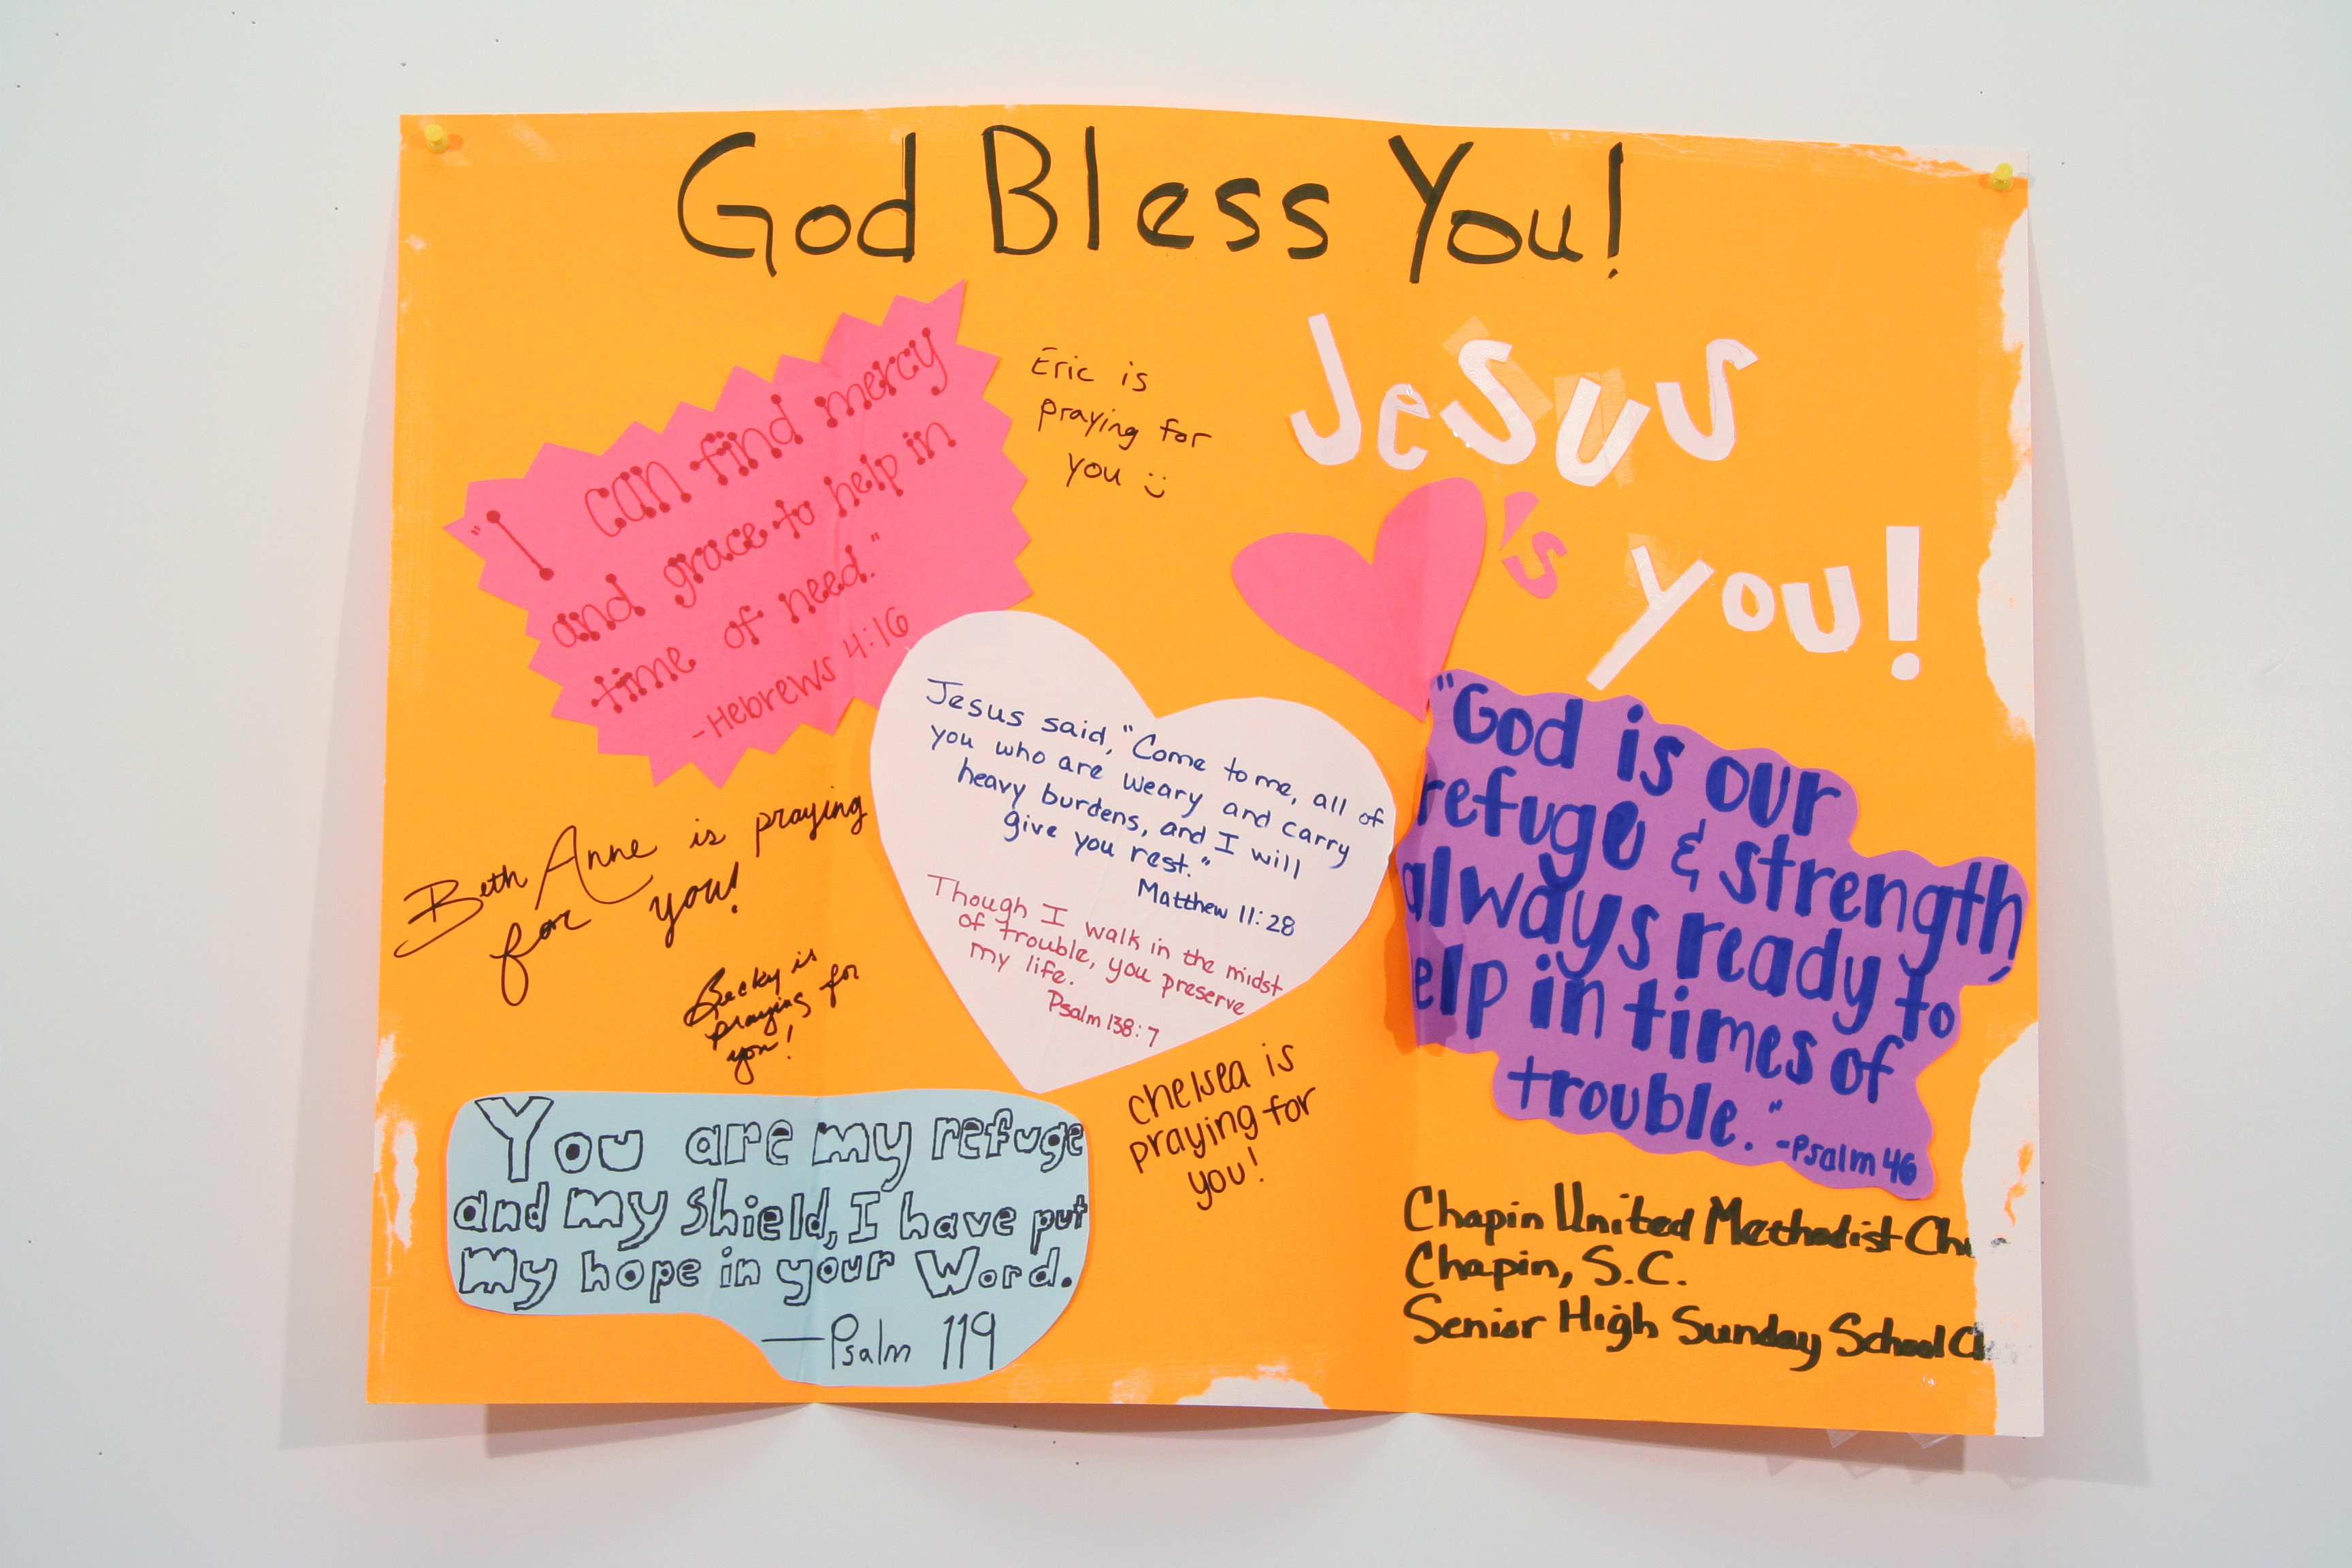 God Bless You!
"I can find mercy
and grace to help in
time of need."
-Hebrews 4:16
Eric is
praying for
you :)
Jesus
's
you!
Jesus said, "Come to me, all of
you who are weary and carry
heavy burdens, and I will
give you rest."
Matthew 11:28
Though I walk in the midst
of trouble, you preserve
my life.
Psalm 138:7
"God is our
refuge & strength,
always ready to
elp in times of
trouble."
-Psalm 46
Beth Anne is praying
for you!
Becky is
praying for
you!
Chelsea is
praying for
you!
You are my refuge
and my shield, I have put
my hope in your Word.
—Psalm 119
Chapin United Methodist
Chapin, S.C.
Senior High Sunday School